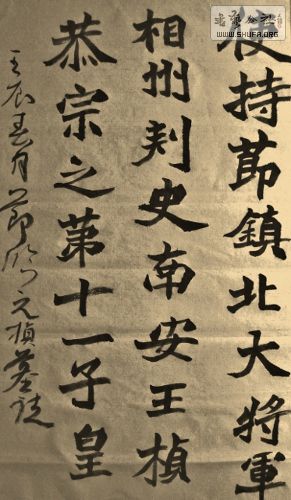 WWW.SHUFA.ORG
使持莭鎮北大將軍
相州刾史南安王楨
恭宗之苐十一子皇
壬辰春月節臨元楨墓誌